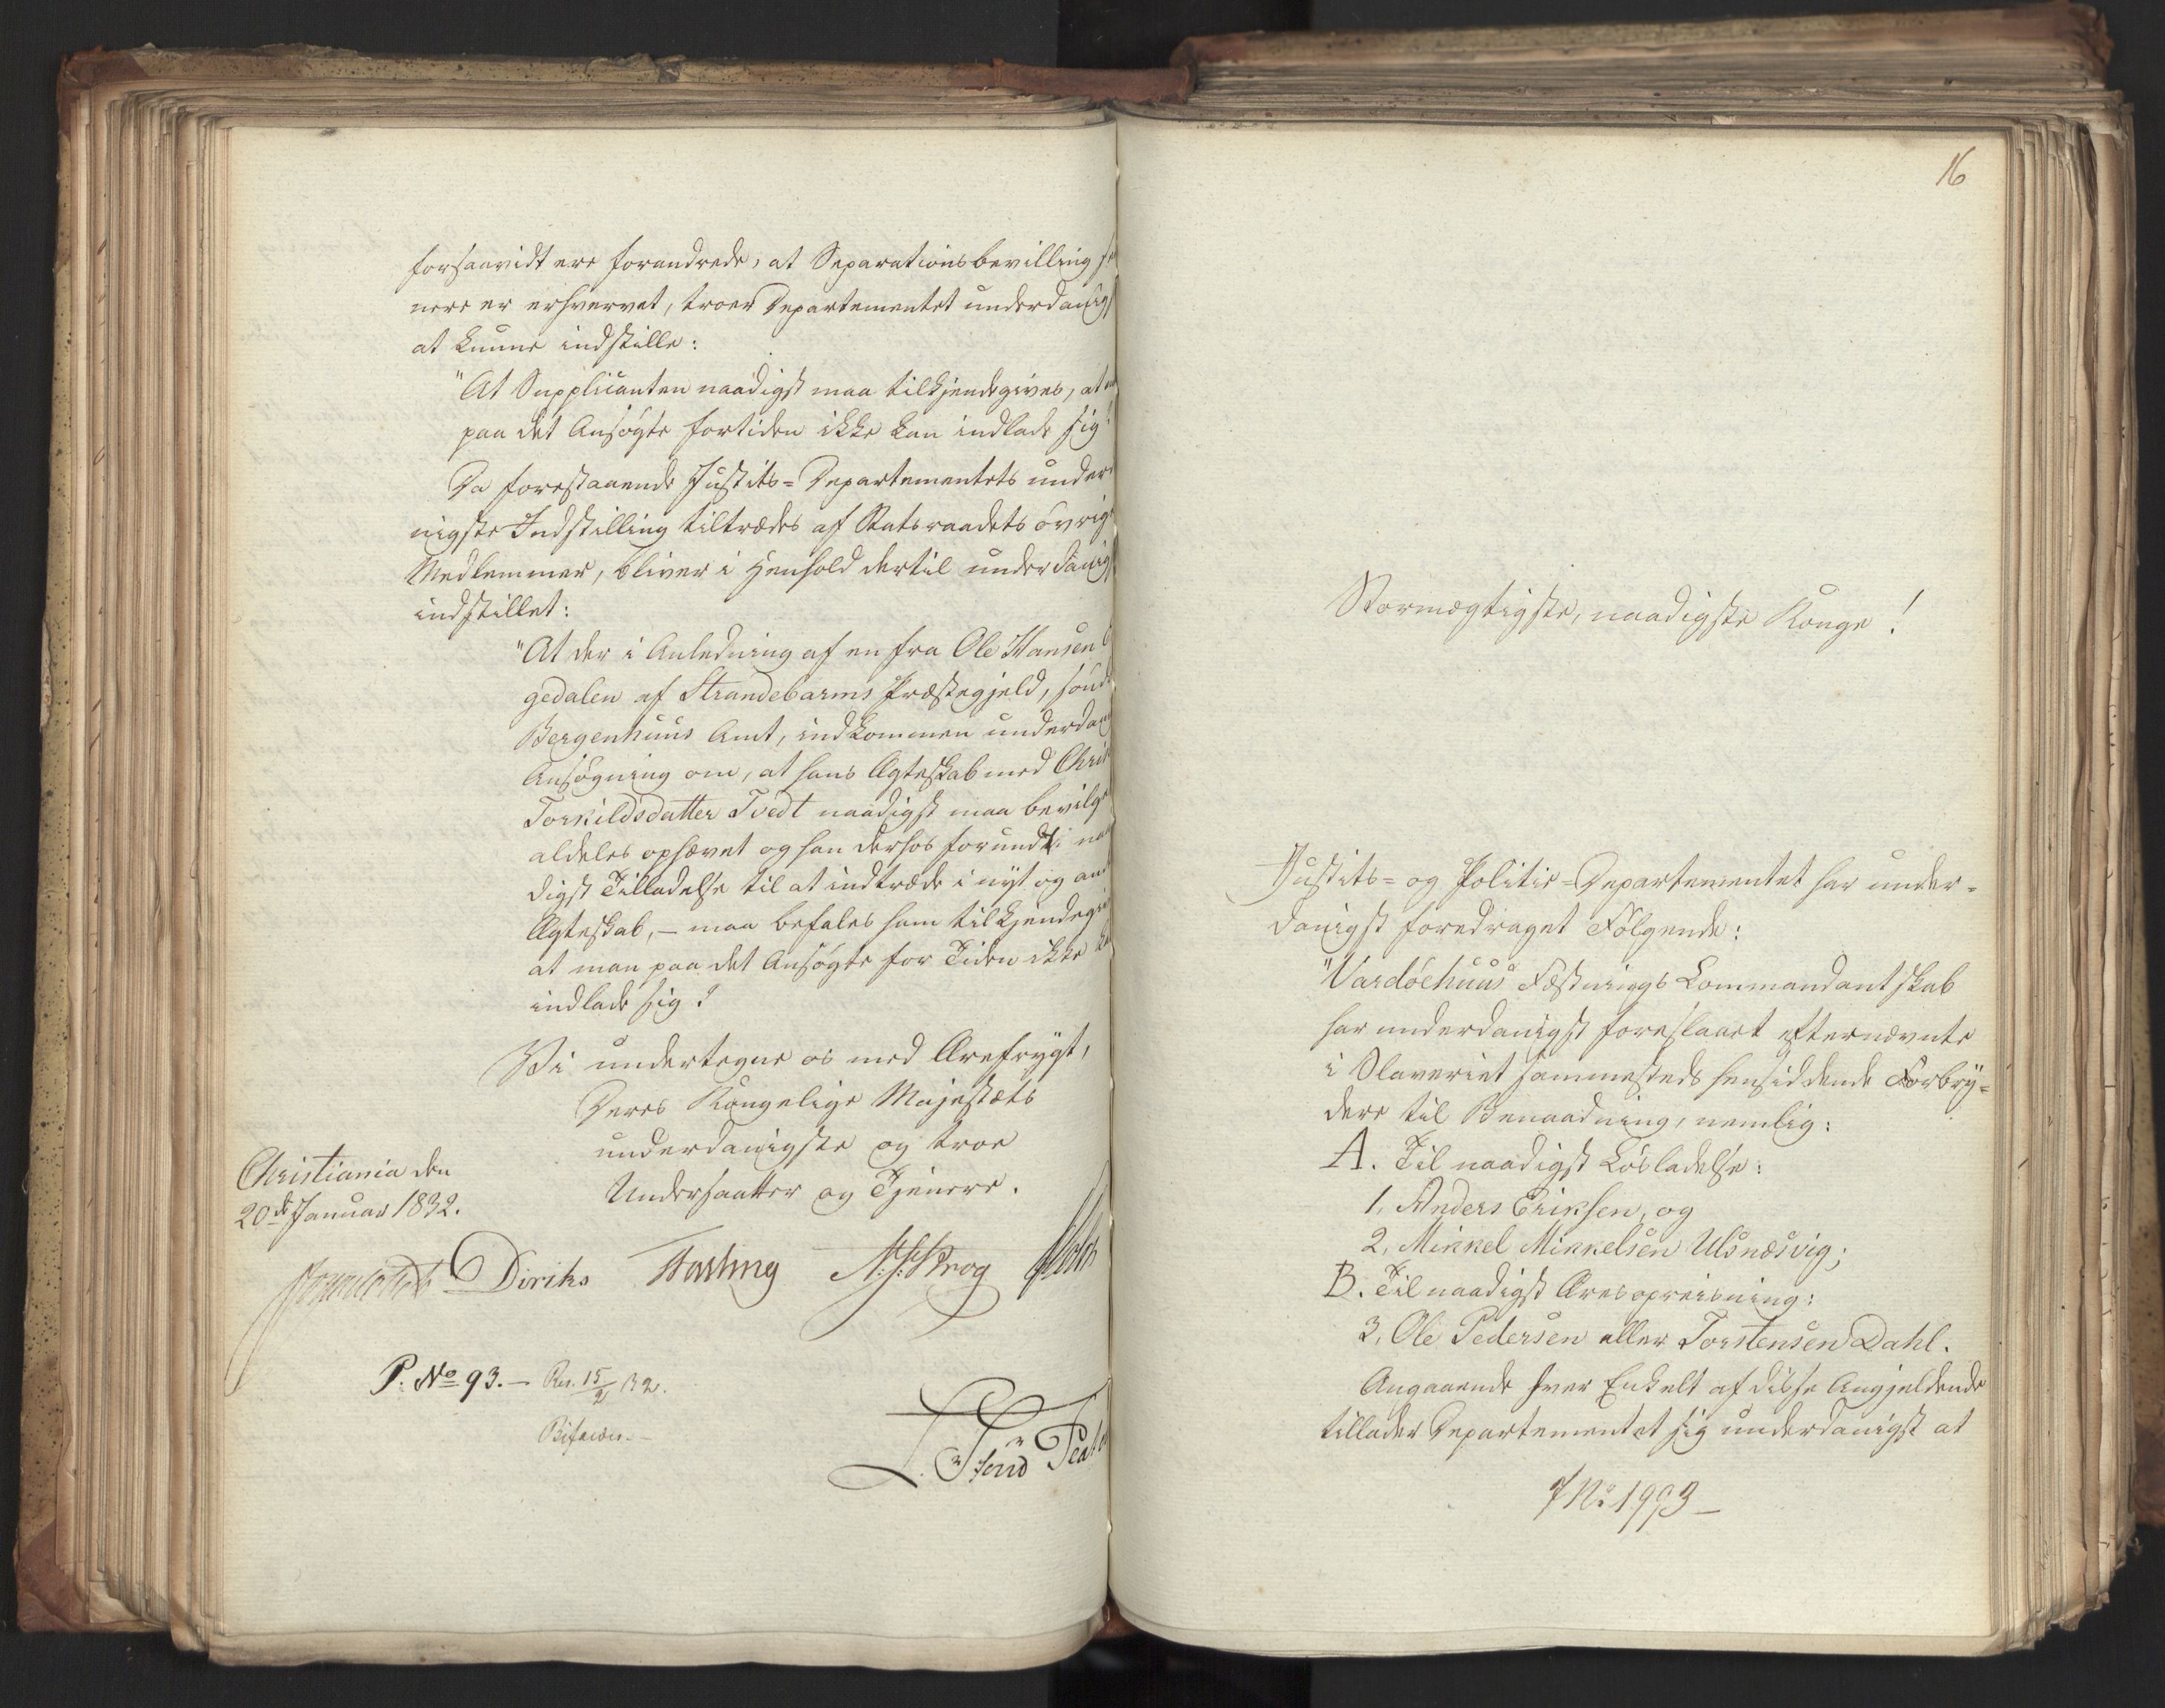 forsaavidt ere forandrede, at Separationsbevilling se
nere er erhvervet, troer Departementet underdanigst
at kunne indstille:
"At Supplicanten naadigst maa tilkjendegives, at
paa det Ansøgte fortiden ikke kan indlade sig"
Da forestaaende Justits=Departementets under
nigste Indstilling tiltrædes af Statsraadets øvrige
Medlemmer, bliver i Henhold dertil underdanigst
indstillet:
"At der i Anledning af en fra Ole Hansen
gedalen af Strandebarms Præstegjeld, sønd
Bergenhuus Amt, indkommen underdan
Ansøgning om, at hans Ægteskab med Chris
Torkildsdatter Tvedt naadigst maa bevilge
aldeles ophævet og han derhos forundt naa
digst Tilladelse til at indtræde i nyt og and
Ægteskab, – maa befales ham tilkjendegiv
at man paa det Ansøgte for Tiden ikke kan
indlade sig."
Vi undertegne os med Ærefrygt,
Deres Kongelige Majestæts
underdanigste og troe
Undersaatter og Tjenere.
Christiania den
20de Januar 1832.
Diriks Fasting Krog Holst
P. No 93. – Res. 15/2 32.
Bifaldes. –
16
Stormægtigste, naadigste Konge!
Justits= og Politie=Departementet har under=
danigst foredraget Følgende:
"Vardøehuus Fæstnings Commandantskab
har underdanigst foreslaaet efternævnte
i Slaveriet sammesteds hensiddende Forbry=
dere til Benaadning, nemlig:
A. Til naadigst Løsladelse:
1, Anders Eriksen, og
2, Mikkel Mikkelsen Ulsnæsvig;
B. Til naadigst Æresopreisning:
3, Ole Pedersen eller Torstensen Dahl.
Angaaende hver Enkelt af disse Angjeldende
tillader Departementet sig underdanigst at
No 1993 –